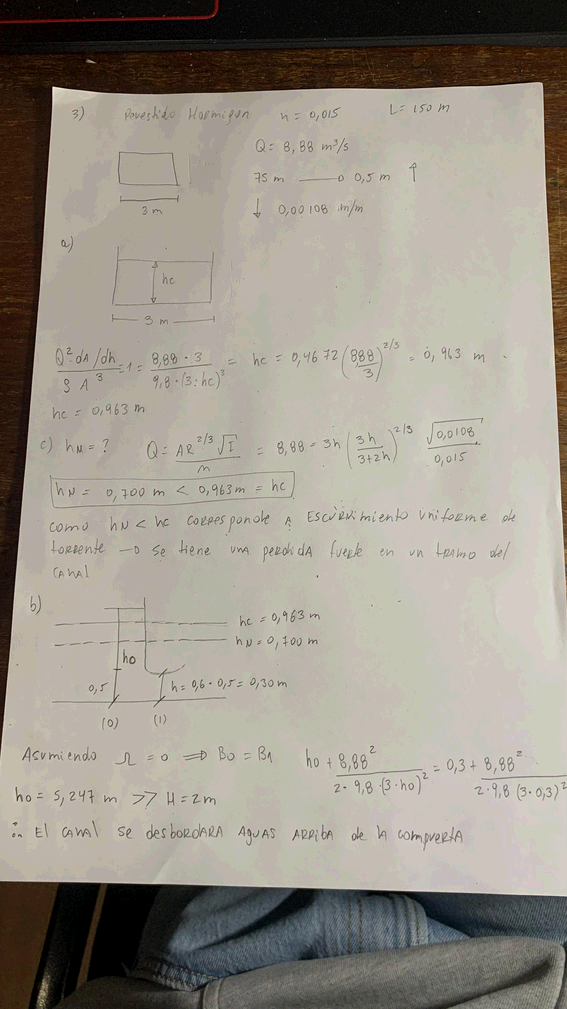 3) Revestido Hormigon n = 0,015 L = 150 m
Q = 8,88 m³/s
75 m —o 0,5 m ↑
3 m
↓ 0,00108 m/m
a)
hc
3 m
Q² dA/dh / g A³ = 1 = 8,88 · 3 / 9,8 · (3 · hc)³ = hc = 0,4672 (888/3)^2/3 = 0,963 m.
hc = 0,963 m
c) hN = ? Q = AR^2/3 √I / n = 8,88 = 3h (3h / 3+2h)^2/3 √0,0108 / 0,015
hN = 0,700 m < 0,963 m = hc
como hN < hc corresponde a escurrimiento uniforme de
torrente —o se tiene una perdida fuerte en un tramo del
canal
b)
hc = 0,963 m
hN = 0,700 m
ho
0,5 h = 0,6 · 0,5 = 0,30 m
(0) (1)
Asumiendo Ω = 0 ⇒ B0 = B1 ho + 8,88² / 2 · 9,8 · (3 · ho)² = 0,3 + 8,88² / 2 · 9,8 (3 · 0,3)²
ho = 5,247 m >> H = 2 m
∴ El canal se desbordara aguas arriba de la compuerta